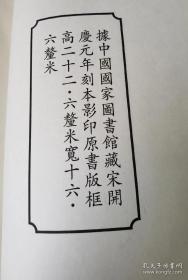 據中國國家圖書館藏宋開
慶元年刻本影印原書版框
高二十二·六釐米寬十六·
六釐米